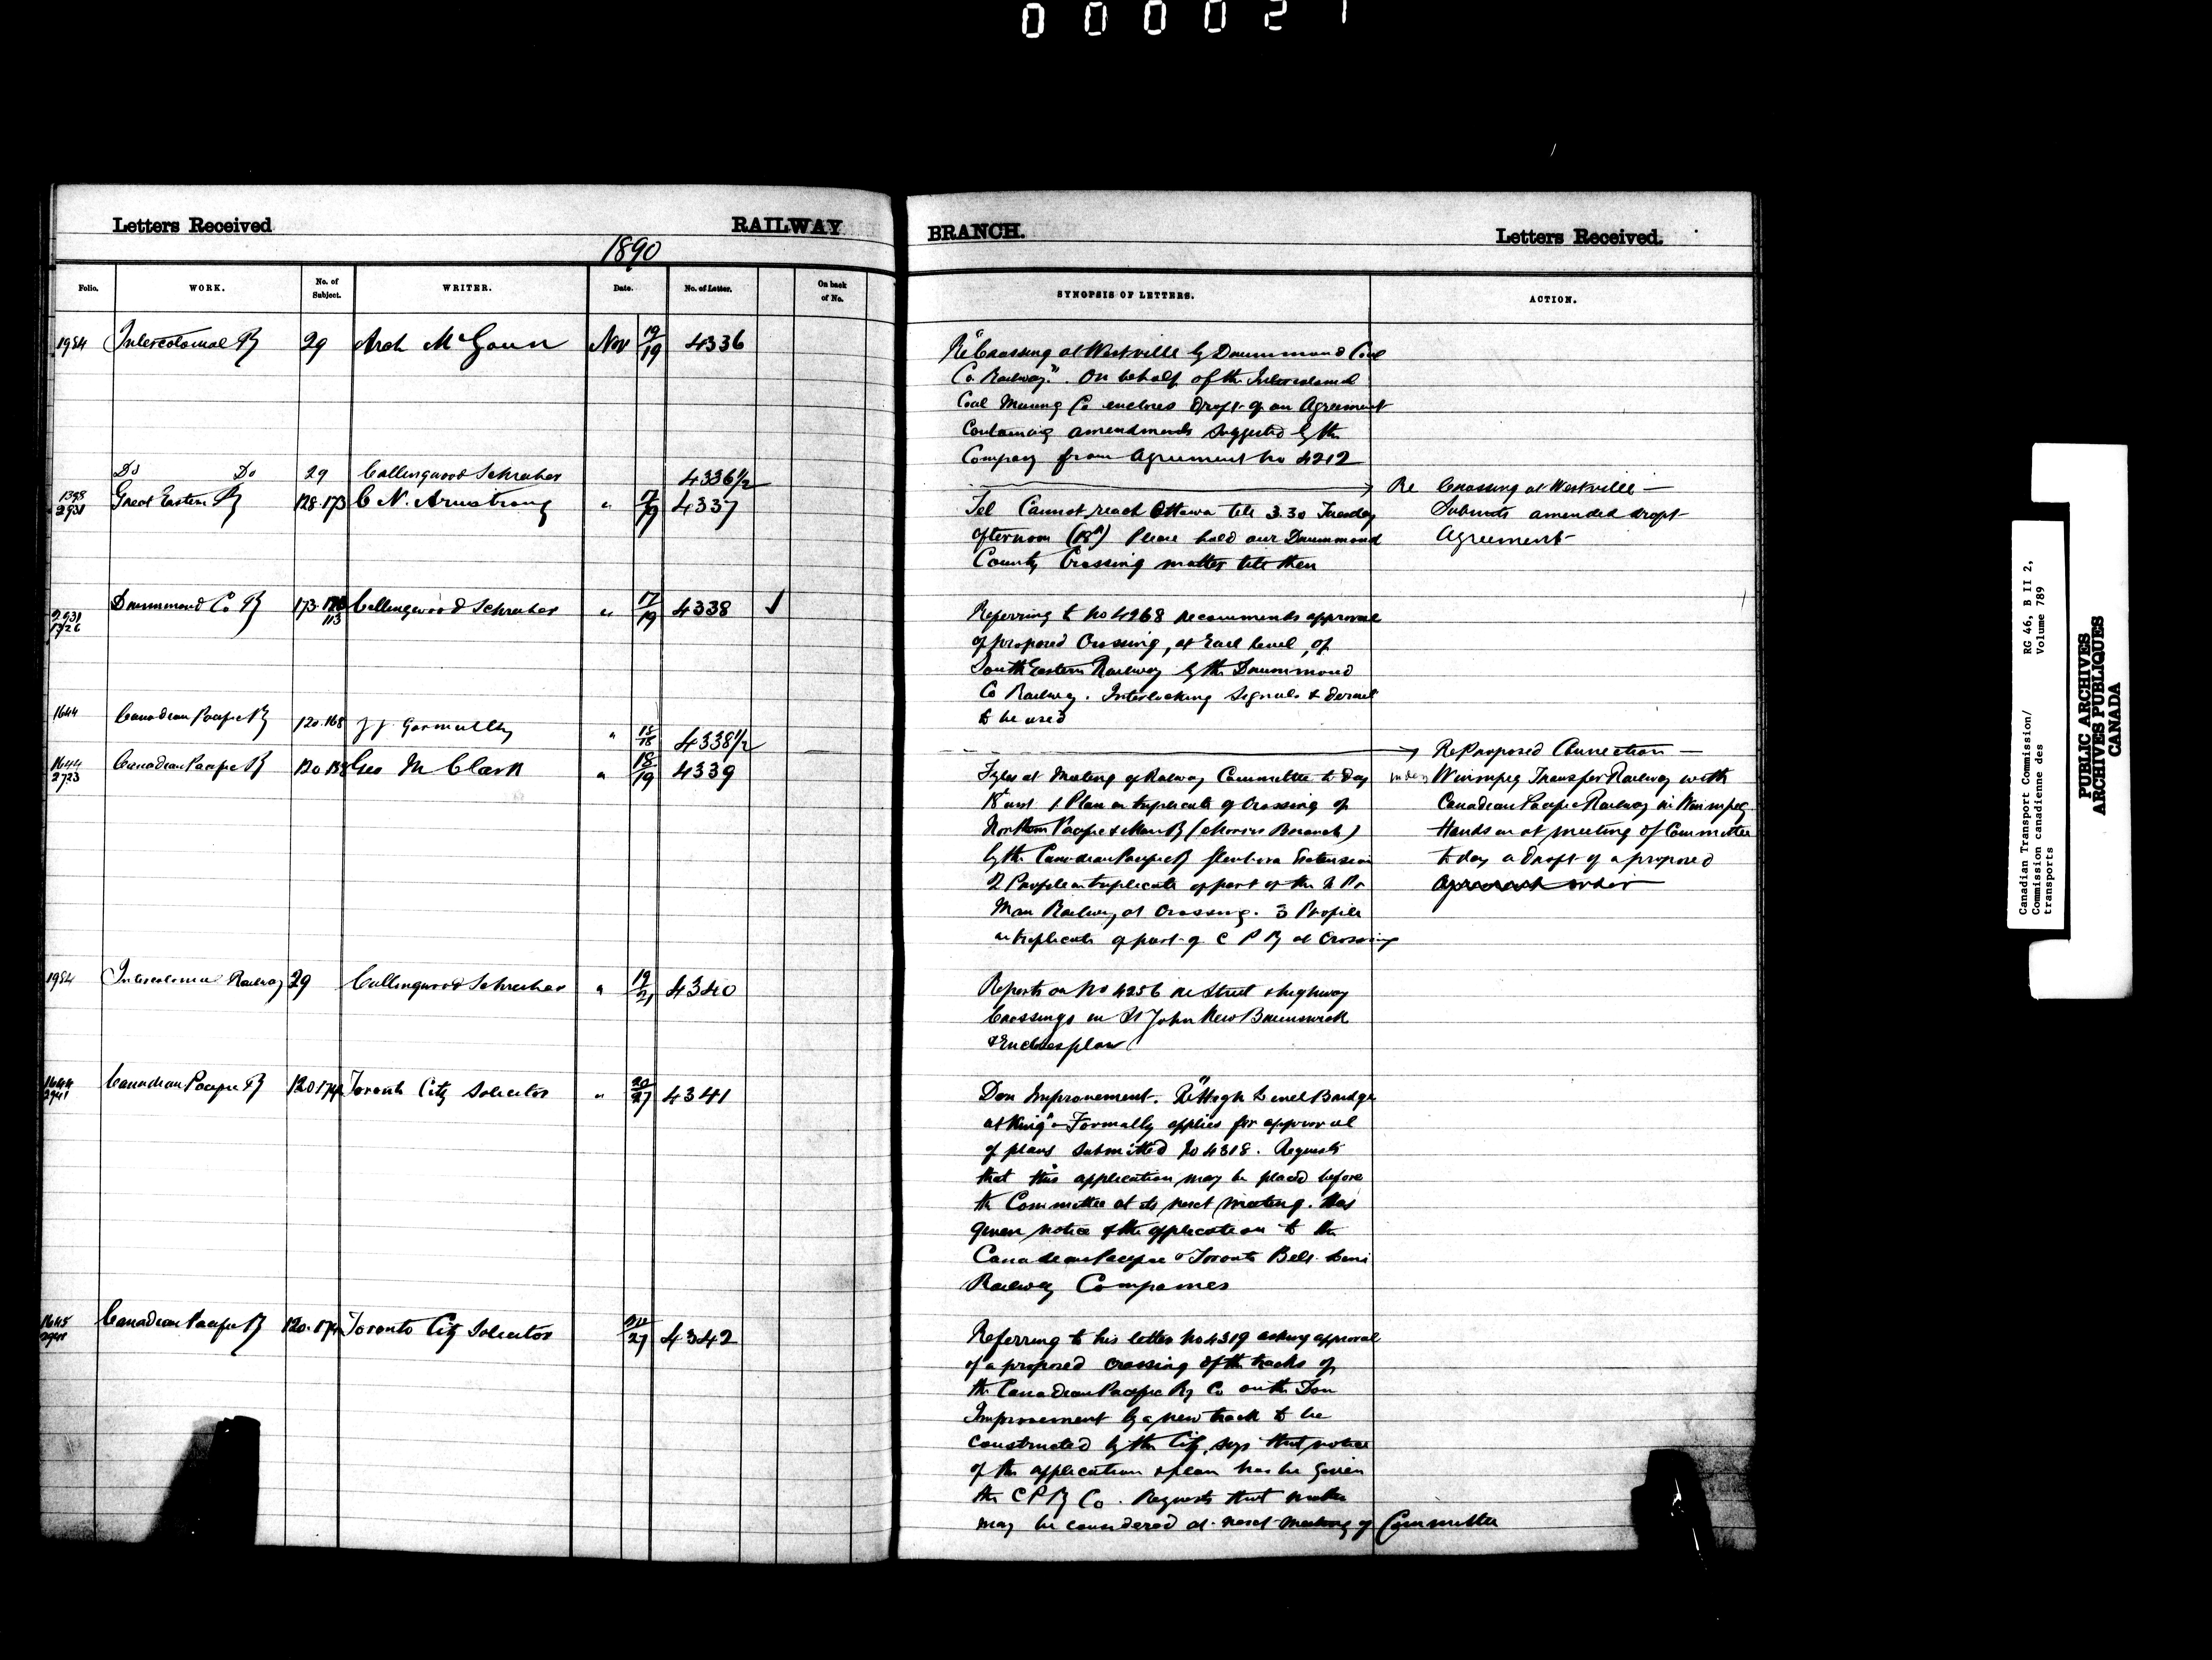 000021
Letters Received
RAILWAY
BRANCH.
Letters Received.
1890
Folio.
WORK.
No. of Subject.
WRITER.
Date.
No. of Letter.
On back of No.
SYNOPSIS OF LETTERS.
ACTION.
1984 Intercolonial Ry 29 Arch McGoun Nov 19/19 4336
Re "Crossing at Westville by Drummond Coal
Co. Railway." On behalf of the Intercolonial
Coal Mining Co encloses Draft of an Agreement
Containing amendments suggested by the
Company from Agreement No 4212
Do Do 29 Collingwood Schreiber 4336 1/2
Re Crossing at Westville —
Submits amended draft
Agreement
1398 2931 Great Eastern Ry 128.173 C N. Armstrong " 17/19 4337
Tel Cannot reach Ottawa till 3.30 Tuesday
afternoon (18th) Please hold our Drummond
County Crossing matter till then
2931 1726 Drummond Co Ry 173. 113 Collingwood Schreiber " 17/19 4338 ✓
Referring to No 4268 recommends approval
of proposed Crossing, at Rail level, of
South Eastern Railway by the Drummond
Co Railway. Interlocking Signals & derail
to be used
1644 Canadian Pacific Ry 120.168 J J. Gormully " 18/18 4338 1/2
Re Proposed Connection —
Winnipeg Transfer Railway with
Canadian Pacific Railway in Winnipeg
Hands in at meeting of Committee
to day a draft of a proposed
Agreement order
1644 2723 Canadian Pacific Ry 120 158 Geo M Clark " 18/19 4339
Fyles at Meeting of Railway Committee to day
18th inst 1 Plan in triplicate of Crossing of
Northern Pacific & Man Ry (Morris Branch)
by the Canadian Pacific Ry Glenboro Extension
2 Profile in triplicate of part of the N P &
Man Railway at Crossing. 3 Profile
in triplicate of part of C P Ry at Crossing
1984 Intercolonial Railway 29 Collingwood Schreiber " 19/21 4340
Reports on No 4256 re Street & highway
Crossings in St John New Brunswick
& Encloses plan
1644 2941 Canadian Pacific Ry 120 174 Toronto City Solicitor " 20/27 4341
Don Improvement. Re "High Level Bridge
at King" Formally applies for approval
of plans submitted No 4318. Requests
that this application may be placed before
the Committee at its next meeting. Has
given notice of the application to the
Canadian Pacific & Toronto Belt Line
Railway Companies
1645 2941 Canadian Pacific Ry 120.174 Toronto City Solicitor 20/27 4342
Referring to his letter No 4319 asking approval
of a proposed crossing of the tracks of
the Canadian Pacific Ry Co on the Don
Improvement by a new track to be
constructed by the City, says that notice
of the application & plan has be given
the C P Ry Co. Requests that matter
may be considered at next meeting of Committee
Canadian Transport Commission/ RG 46, B II 2,
Commission canadienne des Volume 789
transports
PUBLIC ARCHIVES
ARCHIVES PUBLIQUES
CANADA